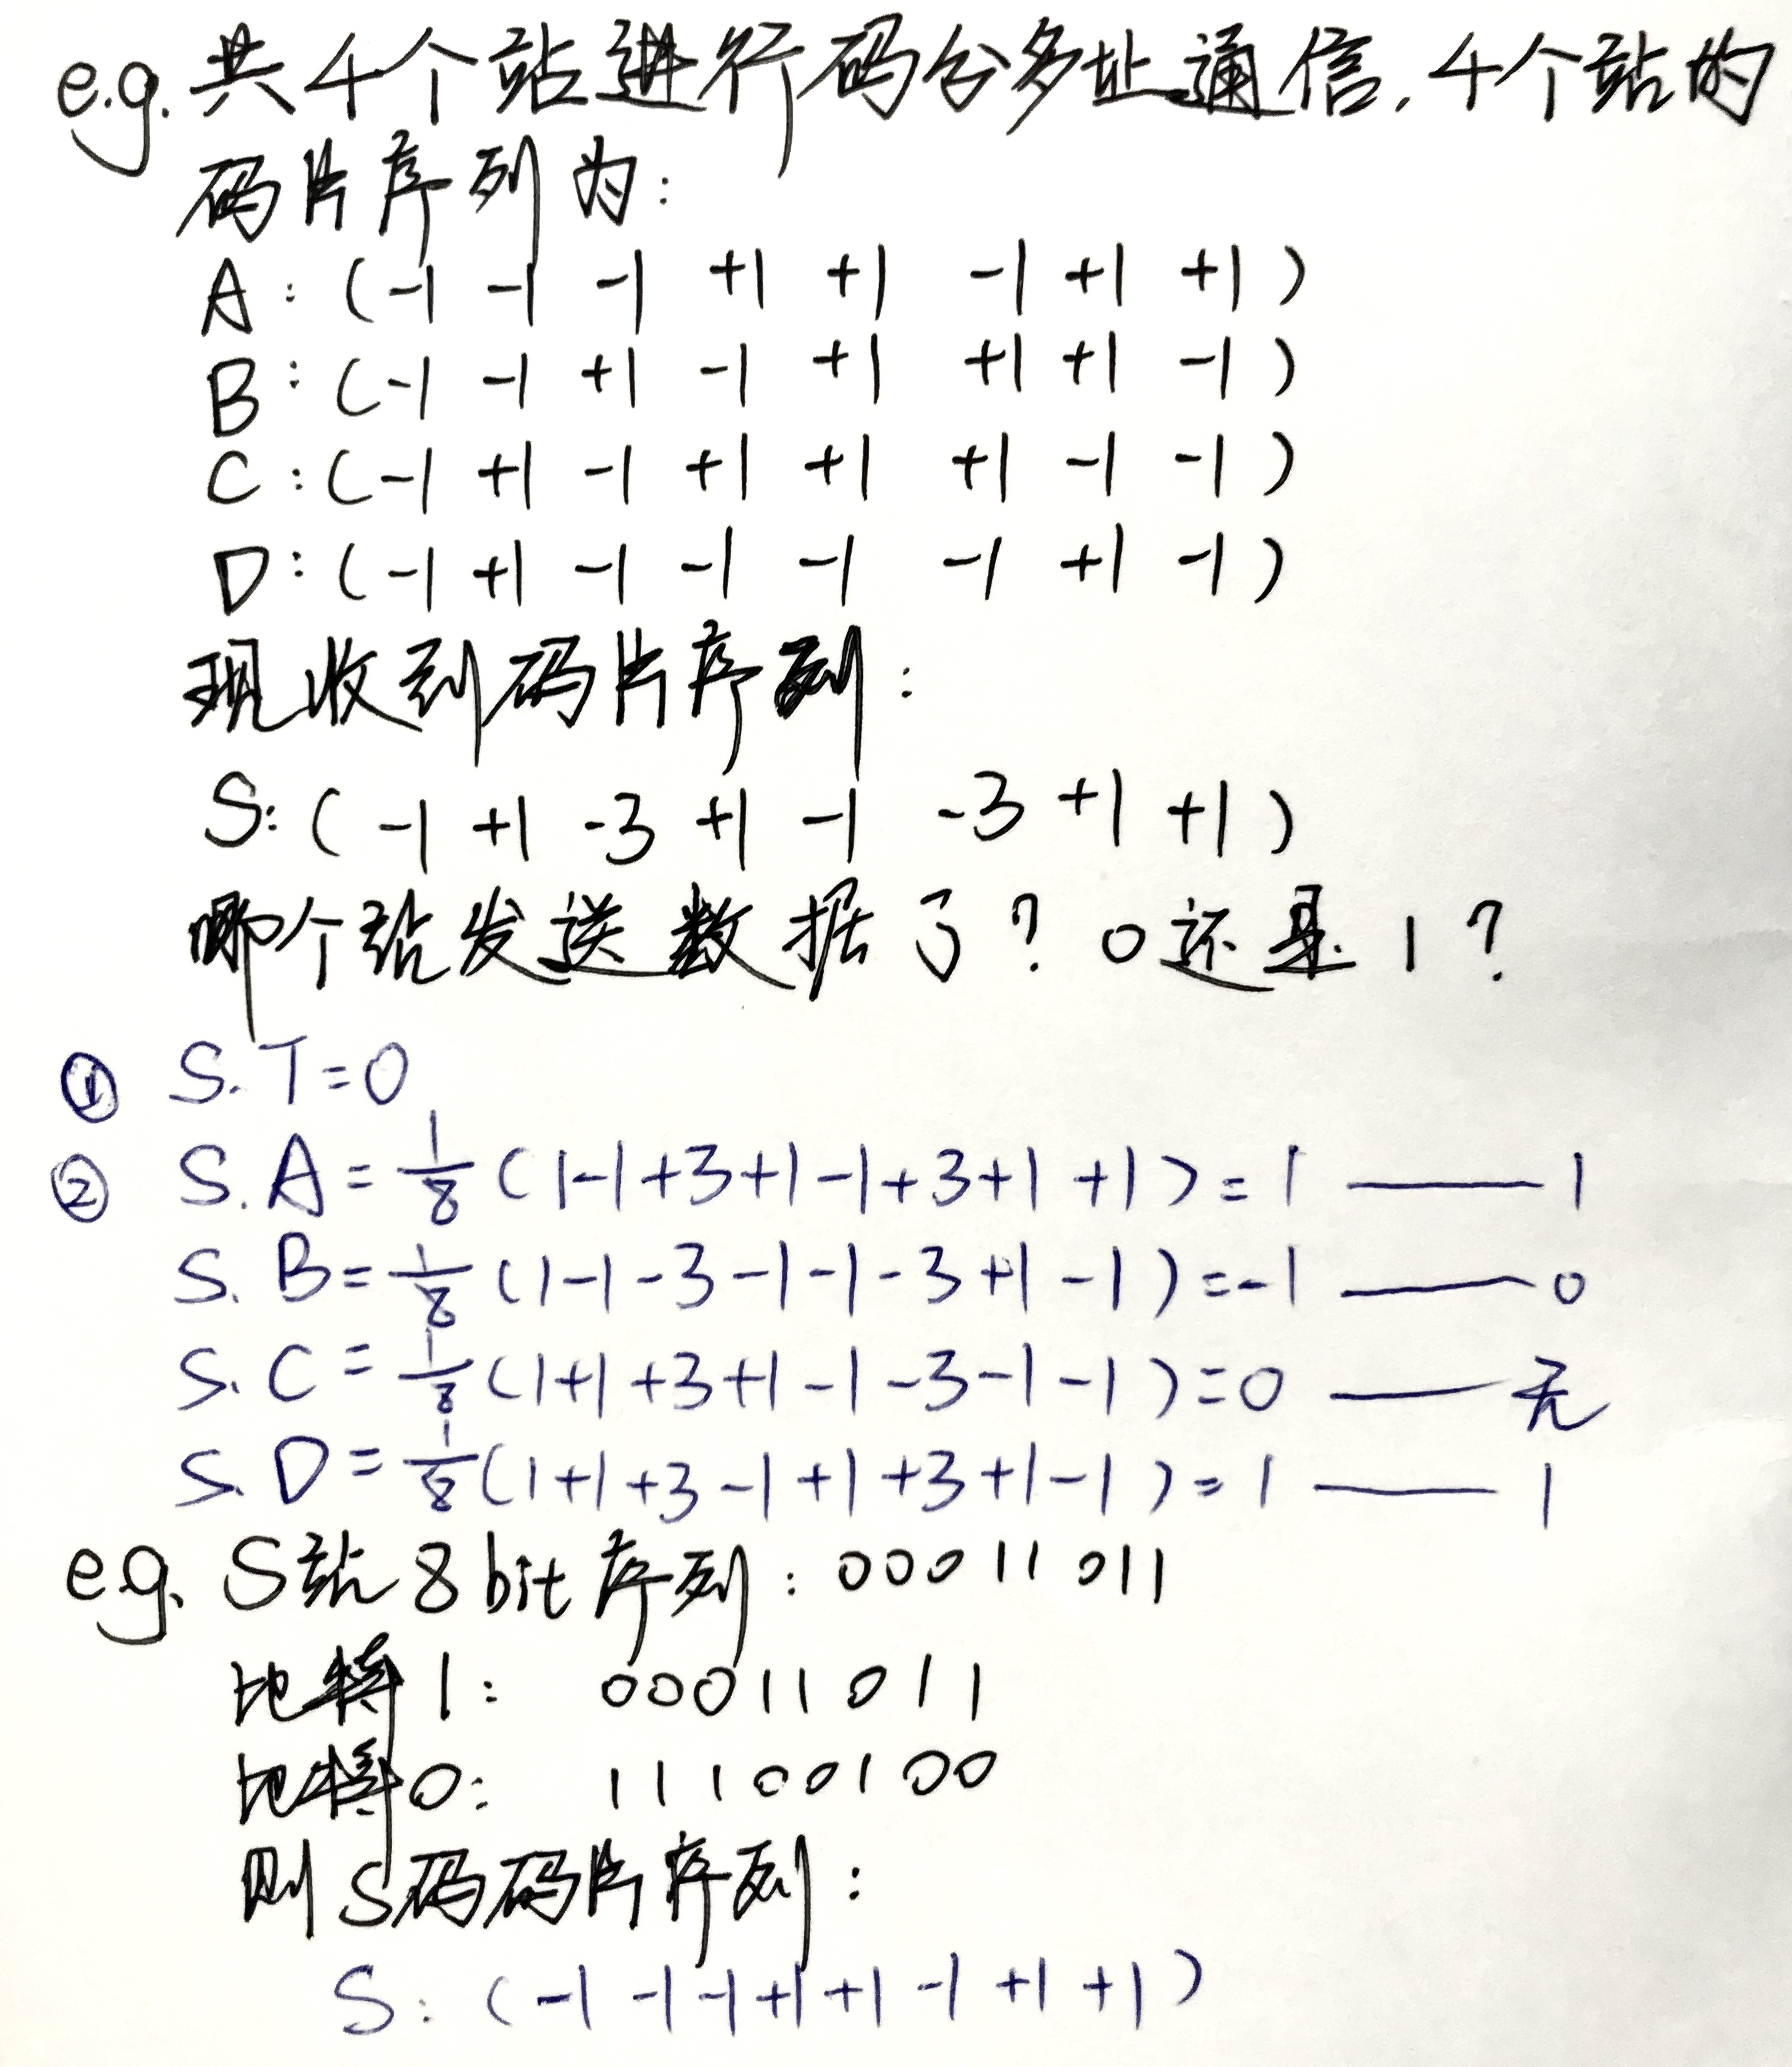 e.g. 共4个站进行码分多址通信.4个站的
码片序列为:
A: (-1 -1 -1 +1 +1 -1 +1 +1)
B: (-1 -1 +1 -1 +1 +1 +1 -1)
C: (-1 +1 -1 +1 +1 +1 -1 -1)
D: (-1 +1 -1 -1 -1 -1 +1 -1)
现收到码片序列:
S: (-1 +1 -3 +1 -1 -3 +1 +1)
哪个站发送数据了? 0还是1?
① S.T=0
② S.A=1/8(1-1+3+1-1+3+1+1)=1 —— 1
S.B=1/8(1-1-3-1-1-3+1-1)=-1 —— 0
S.C=1/8(1+1+3+1-1-3-1-1)=0 —— 无
S.D=1/8(1+1+3-1+1+3+1-1)=1 —— 1
e.g. S站8bit序列: 00011011
比特1: 00011011
比特0: 11100100
则S码码片序列:
S: (-1 -1 -1 +1 +1 -1 +1 +1)